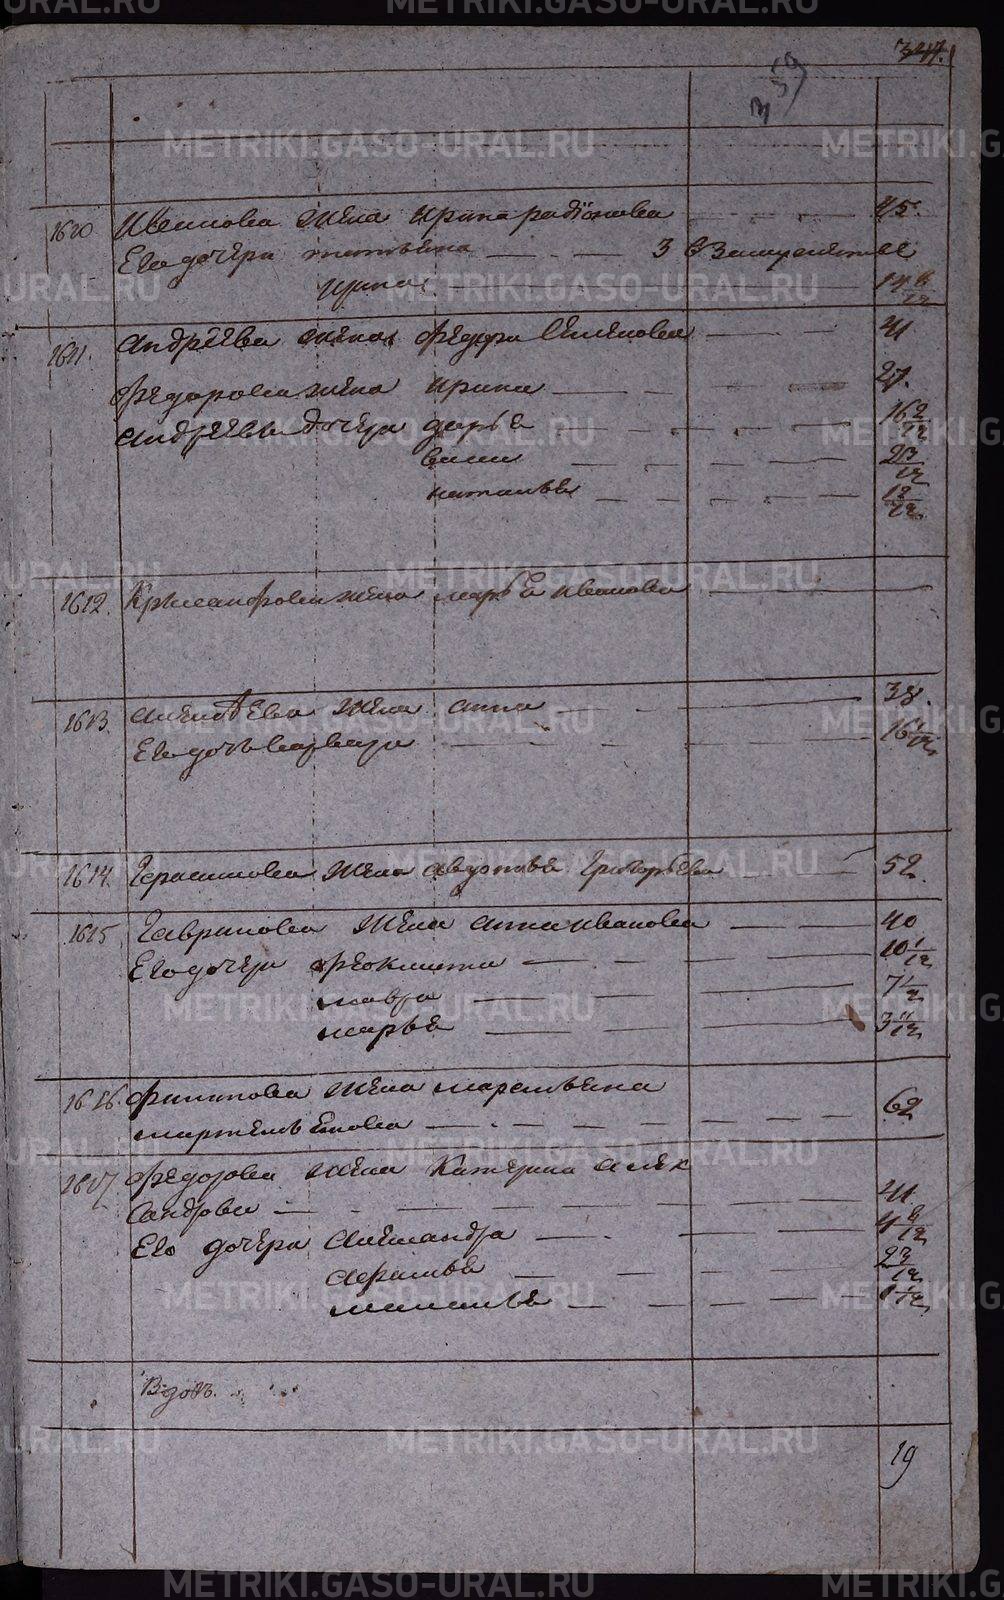 347.
359
1610 Иванова жена Ирина радіонова 45.
Его дочери татьяна 3 в Замужестве
Ирина 14
1611. Андрѣева жена Федора Семенова 41
Федорова жена Ирина 27.
Андрѣева дочери дарья 16
2
наталья
1612. жена марья Иванова
1613. жена анна 38.
Его дочь варвара 16
1614. Герасимова жена авдотья Григорьева 52.
1615 Гаврилова жена анна иванова 40
Его дочери феоклиста 10 1/12
мавра 7 1/2
марья 3 11/12
1616. филипова жена маремьяна
62
1617 федорова жена Катерина алек
сандрова 41
Его дочери Александра 4
2
1/12
Вдовъ.
19
METRIKI.GASO-URAL.RU